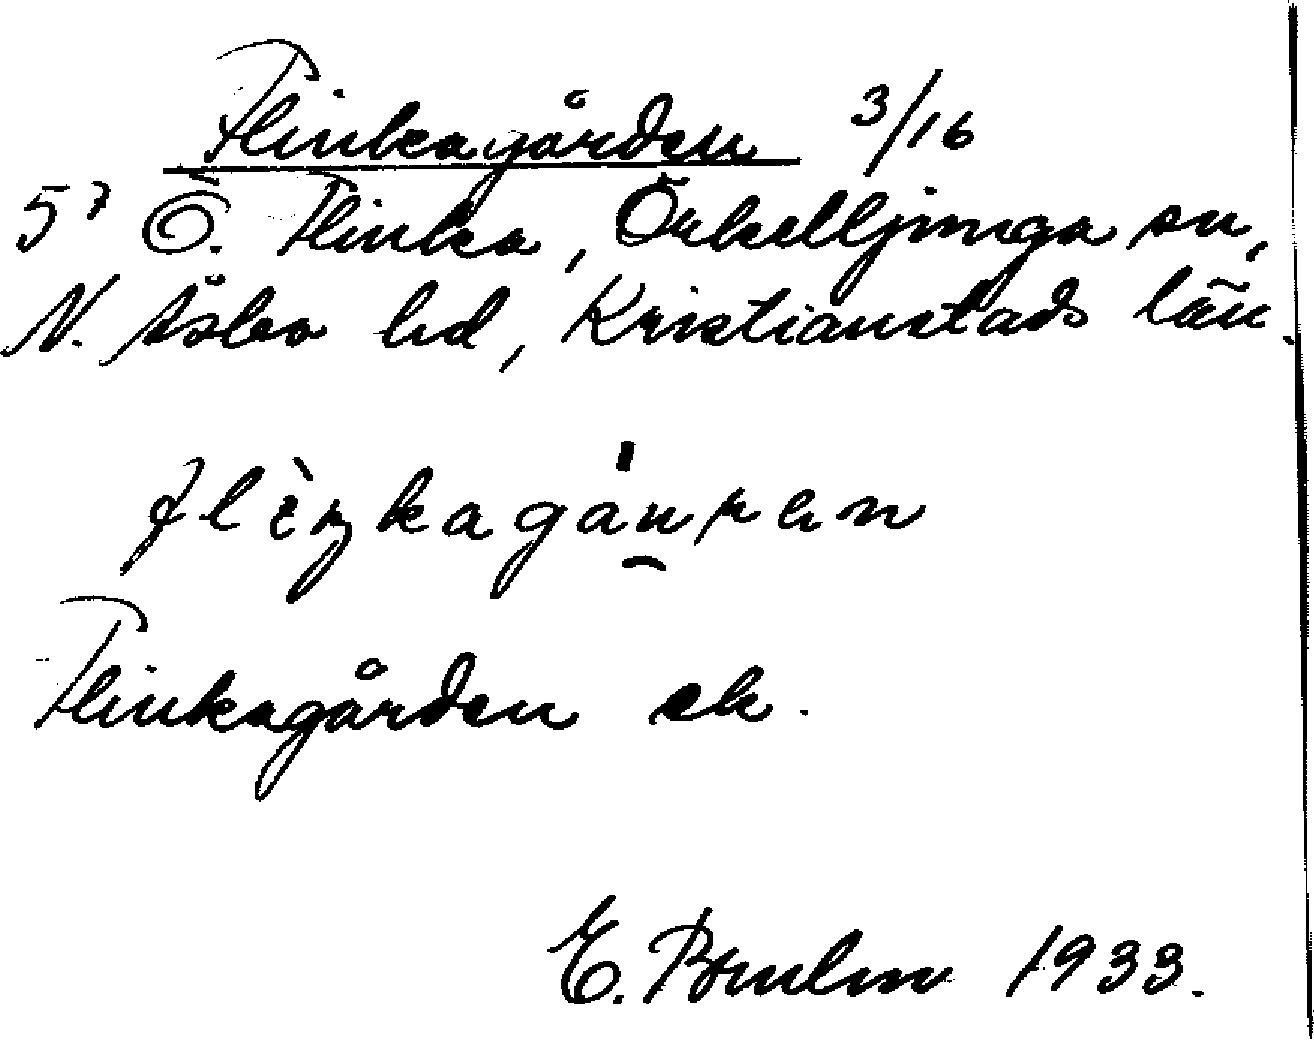 Flinkagården 3/16
5⁷ Ö. Flinka, Örkelljunga sn,
N. Åsbo hd, Kristianstads län.
flìŋkagáu̯ren
Flinkagården ek.
E. Brulin 1933.